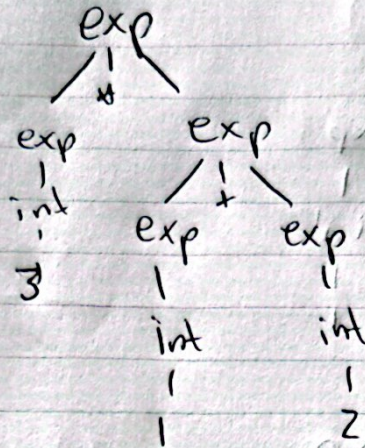 exp
*
exp exp
int +
exp exp
3
int int
1 2